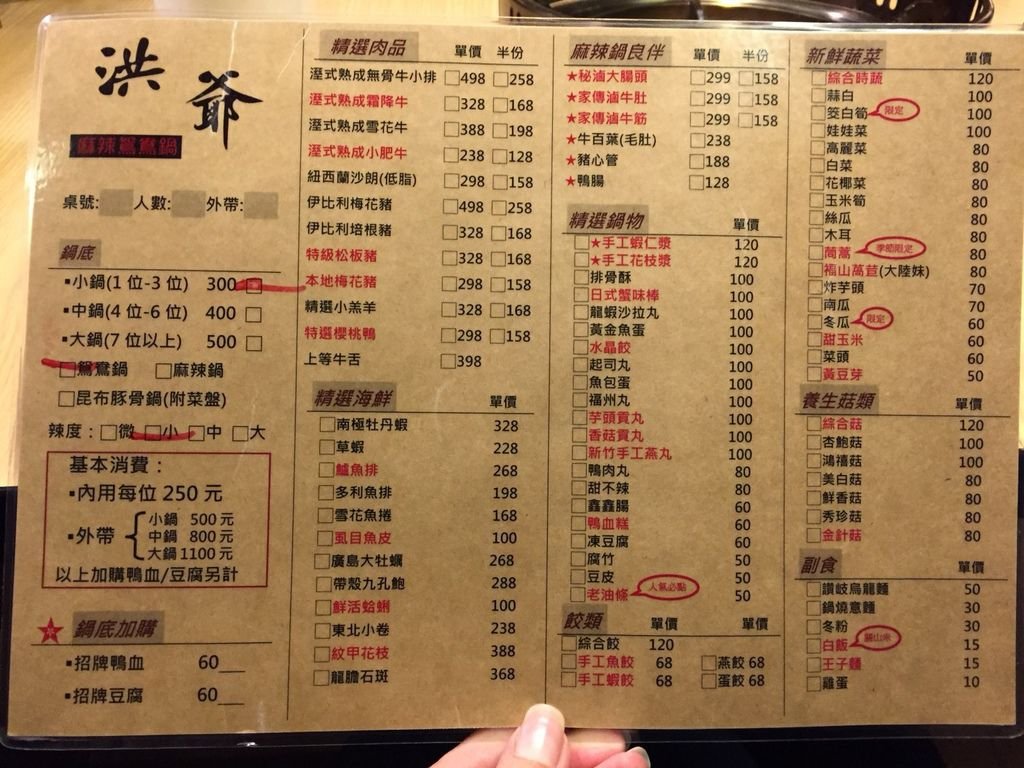 洪爺
麻辣鴛鴦鍋
桌號: 人數: 外帶:
鍋底
▪小鍋(1 位-3 位) 300 □
▪中鍋(4 位-6 位) 400 □
▪大鍋(7 位以上) 500 □
□鴛鴦鍋 □麻辣鍋
□昆布豚骨鍋(附菜盤)
辣度：□微 □小 □中 □大
基本消費：
▪內用每位 250 元
▪外帶
小鍋 500 元
中鍋 800 元
大鍋 1100 元
以上加購鴨血/豆腐另計
★ 鍋底加購
▪招牌鴨血 60__
▪招牌豆腐 60__
精選肉品 單價 半份
溼式熟成無骨牛小排 □498 □258
溼式熟成霜降牛 □328 □168
溼式熟成雪花牛 □388 □198
溼式熟成小肥牛 □238 □128
紐西蘭沙朗(低脂) □298 □158
伊比利梅花豬 □498 □258
伊比利培根豬 □328 □168
特級松板豬 □328 □168
本地梅花豬 □298 □158
精選小羔羊 □328 □168
特選櫻桃鴨 □298 □158
上等牛舌 □398
精選海鮮 單價
□南極牡丹蝦 328
□草蝦 228
□鱸魚排 268
□多利魚排 198
□雪花魚捲 168
□虱目魚皮 100
□廣島大牡蠣 268
□帶殼九孔鮑 288
□鮮活蛤蜊 100
□東北小卷 238
□紋甲花枝 388
□龍膽石斑 368
麻辣鍋良伴 單價 半份
★秘滷大腸頭 □299 □158
★家傳滷牛肚 □299 □158
★家傳滷牛筋 □299 □158
★牛百葉(毛肚) □238
★豬心管 □188
★鴨腸 □128
精選鍋物 單價
□★手工蝦仁漿 120
□★手工花枝漿 120
□排骨酥 100
□日式蟹味棒 100
□龍蝦沙拉丸 100
□黃金魚蛋 100
□水晶餃 100
□起司丸 100
□魚包蛋 100
□福州丸 100
□芋頭貢丸 100
□香菇貢丸 100
□新竹手工燕丸 100
□鴨肉丸 80
□甜不辣 80
□鑫鑫腸 60
□鴨血糕 60
□凍豆腐 60
□腐竹 50
□豆皮 50
□老油條 人氣必點 50
餃類 單價 單價
□綜合餃 120
□手工魚餃 68 □燕餃 68
□手工蝦餃 68 □蛋餃 68
新鮮蔬菜 單價
□綜合時蔬 120
□蒜白 100
□筊白筍 限定 100
□娃娃菜 100
□高麗菜 80
□白菜 80
□花椰菜 80
□玉米筍 80
□絲瓜 80
□木耳 80
□茼蒿 季節限定 80
□福山萵苣(大陸妹) 80
□炸芋頭 70
□南瓜 70
□冬瓜 限定 60
□甜玉米 60
□菜頭 60
□黃豆芽 50
養生菇類 單價
□綜合菇 120
□杏鮑菇 100
□鴻禧菇 100
□美白菇 80
□鮮香菇 80
□秀珍菇 80
□金針菇 80
副食 單價
□讚岐烏龍麵 50
□鍋燒意麵 30
□冬粉 30
□白飯 關山米 15
□王子麵 15
□雞蛋 10